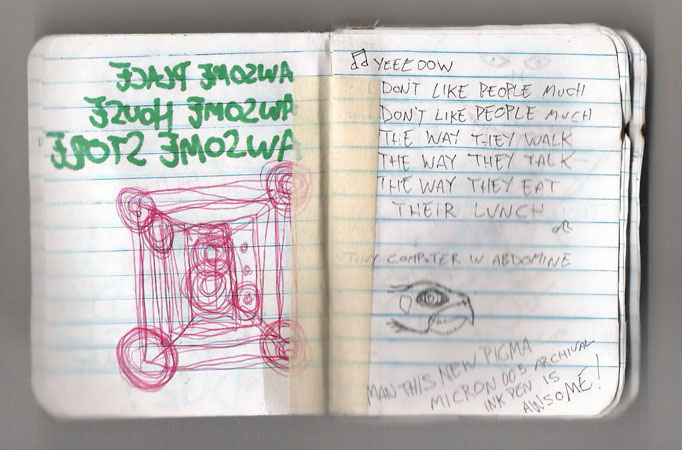 AWSOME PLACE
AWSOME HOUSE
AWSOME STORE
♫ YEEEOOW
DON'T LIKE PEOPLE MUCH
DON'T LIKE PEOPLE MUCH
THE WAY THEY WALK
THE WAY THEY TALK
THE WAY THEY EAT
THEIR LUNCH
♫
TINY COMPUTER IN ABDOMINE
MAN THIS NEW PIGMA
MICRON 005 ARCHIVAL
INK PEN IS
AWSOME!